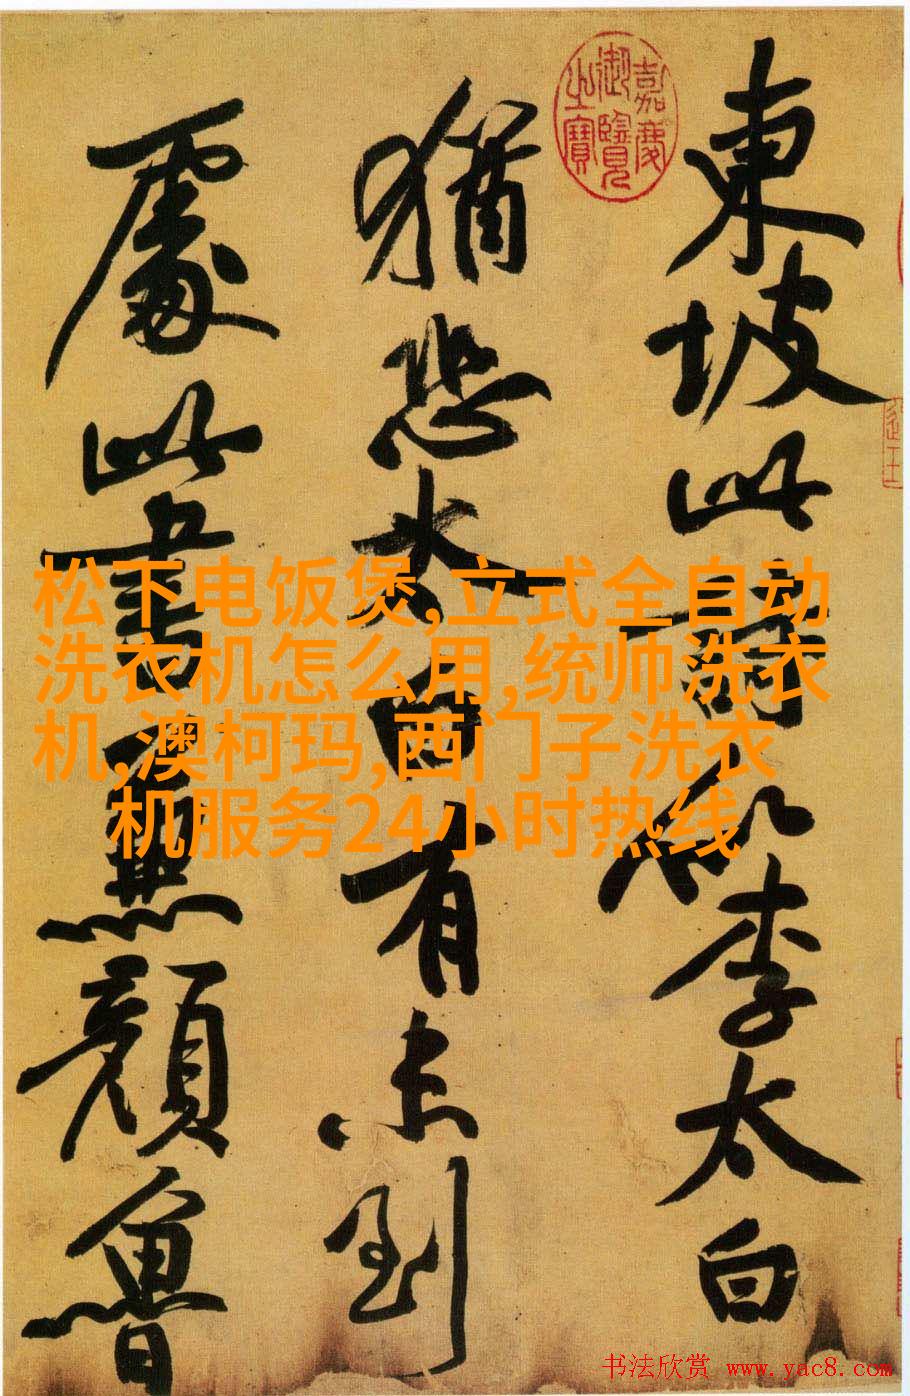 東坡此詩似李太白
猶恐太白有未到
處此書兼顏魯
嘉慶御覽之寶
松下电饭煲,立式全自动
洗衣机怎么用,统帅洗衣
机,澳柯玛,西门子洗衣
机服务24小时热线
书法欣赏 www.yac8.com